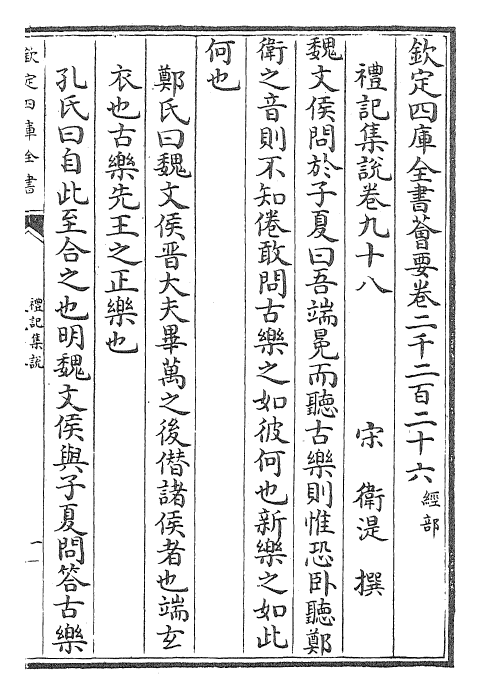 欽定四庫全書薈要卷二千二百二十六 經部
禮記集說卷九十八 宋 衛湜 撰
魏文侯問於子夏曰吾端冕而聽古樂則惟恐卧聽鄭
衛之音則不知倦敢問古樂之如彼何也新樂之如此
何也
鄭氏曰魏文侯晉大夫畢萬之後僭諸侯者也端玄
衣也古樂先王之正樂也
孔氏曰自此至合之也明魏文侯與子夏問答古樂
欽定四庫全書
禮記集說
一